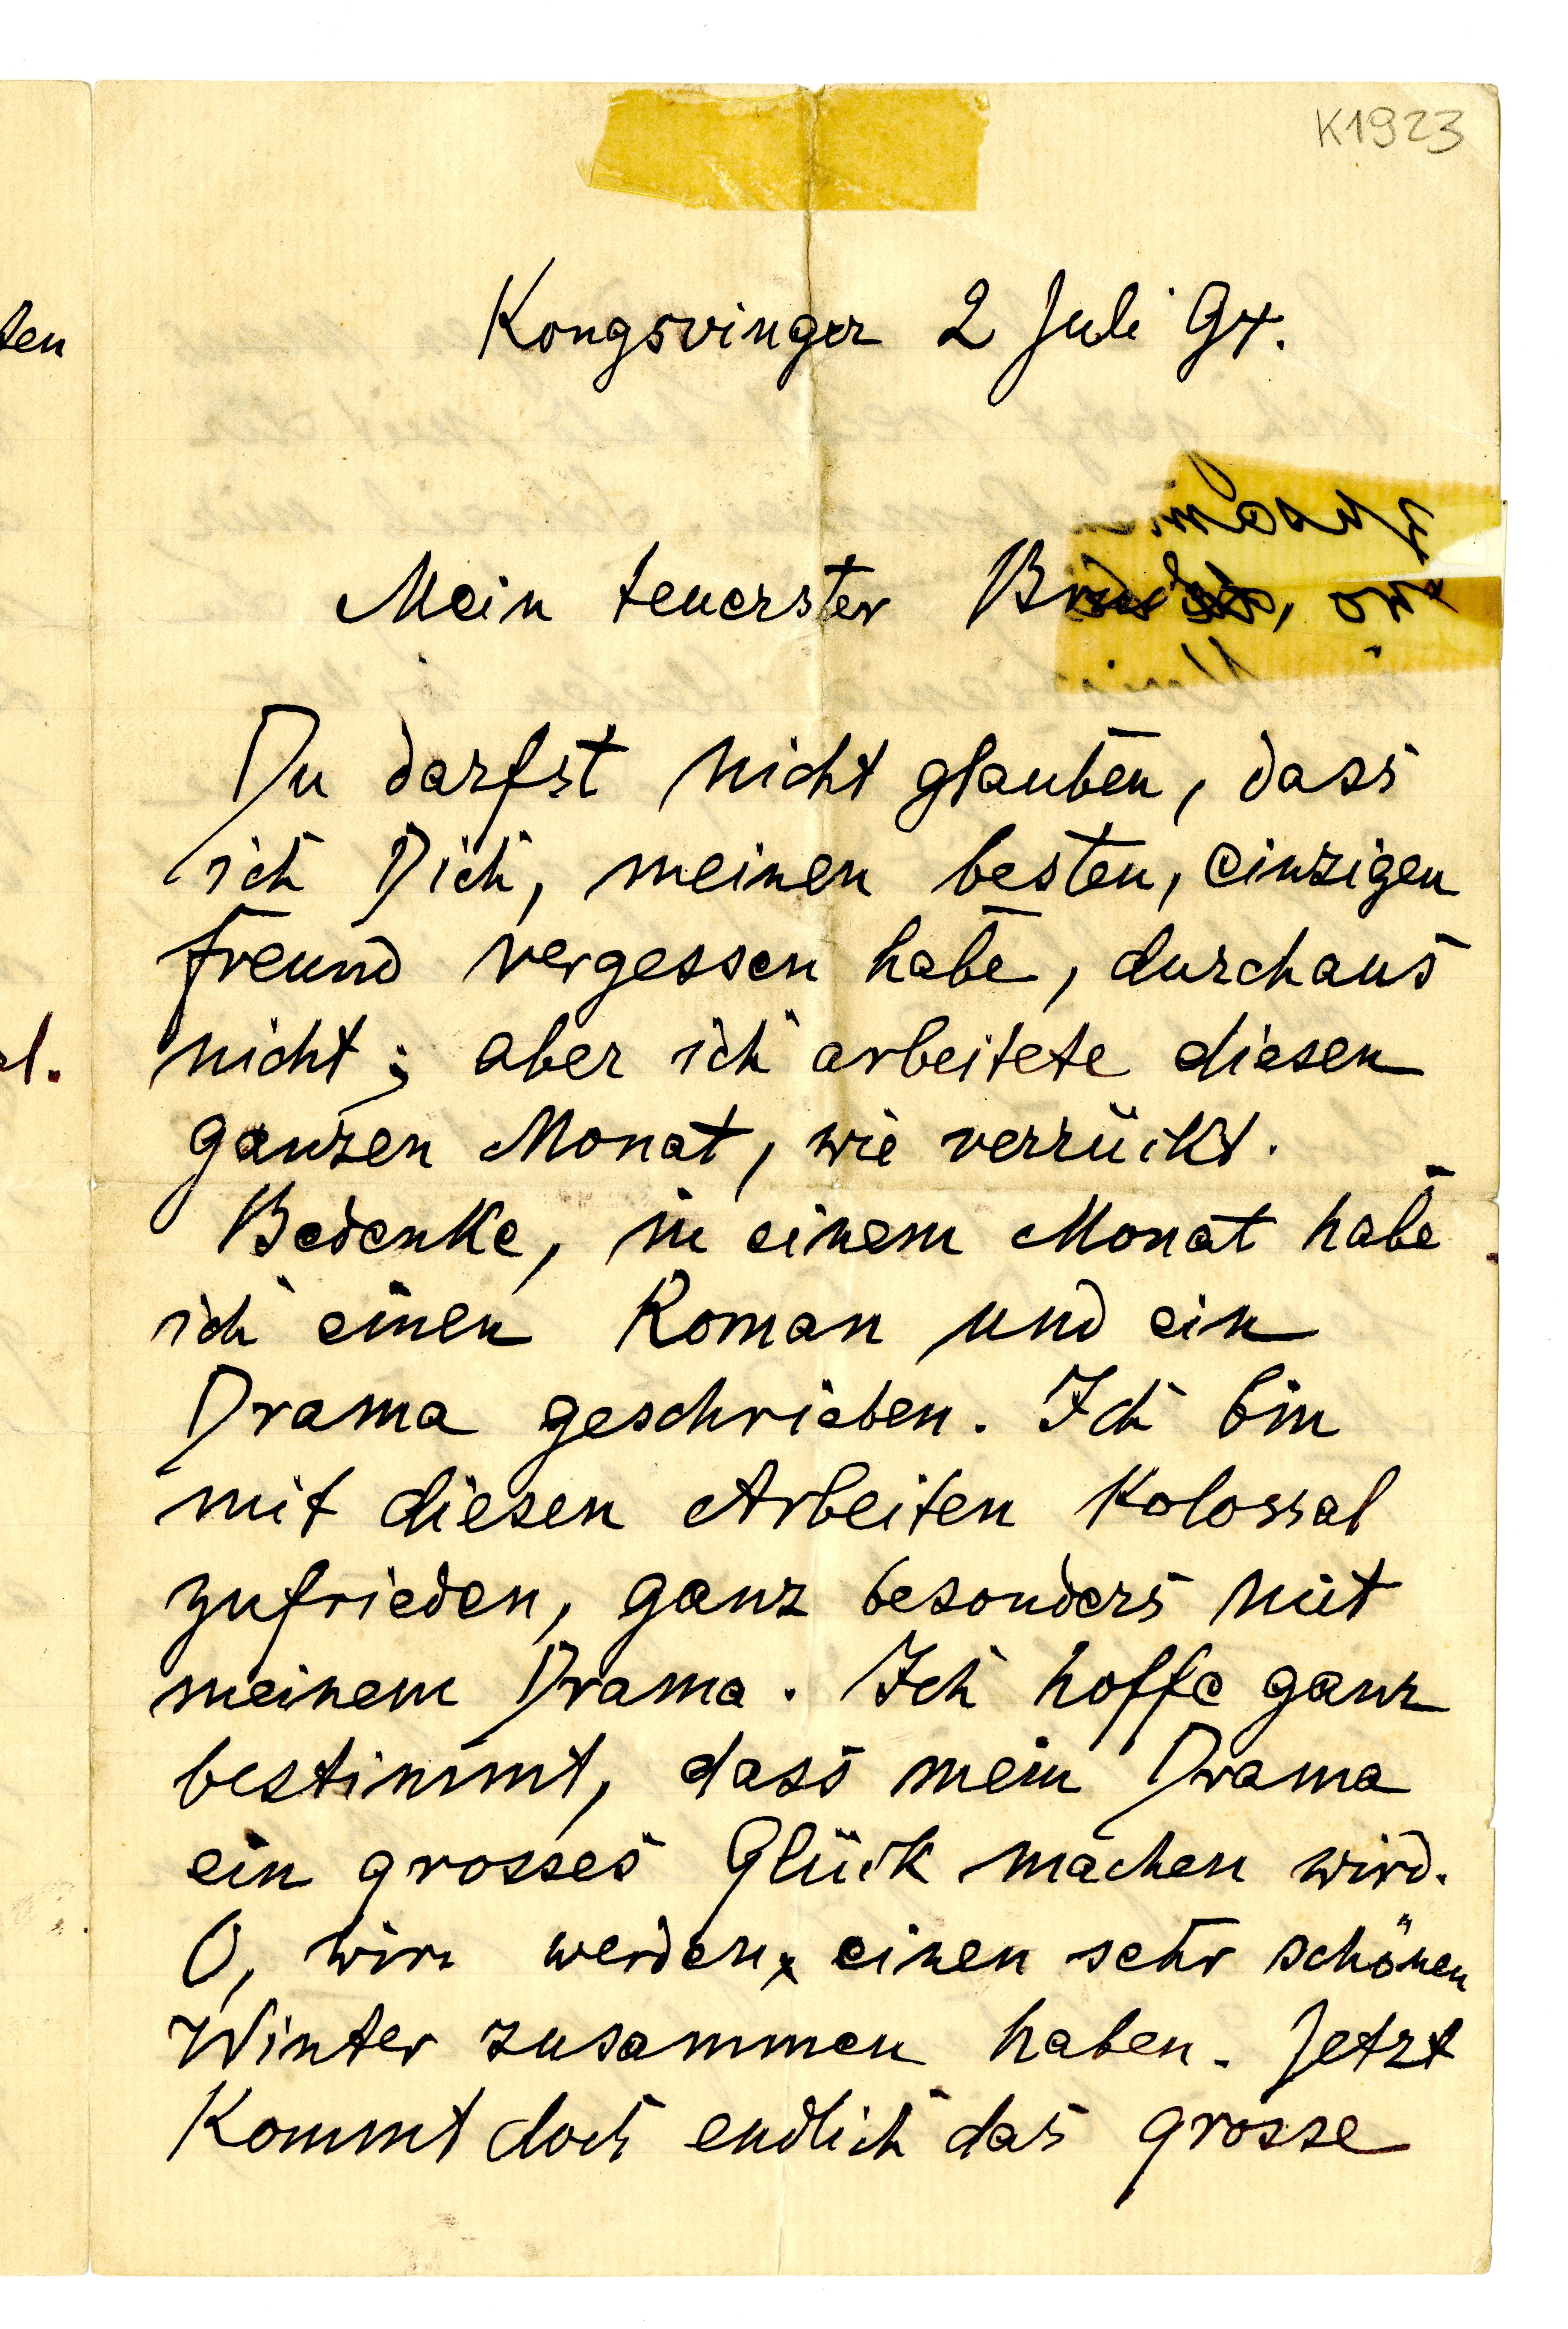 K1923
Kongsvinger 2 Juli 94.
Mein teuerster Bruder,
Du darfst nicht glauben, dass
ich Dich, meinen besten, einzigen
Freund vergessen habe, durchaus
nicht; aber ich arbeitete diesen
ganzen Monat, wie verrückt.
Bedenke, in einem Monat habe
ich einen Roman und ein
Drama geschrieben. Ich bin
mit diesen Arbeiten kolossal
zufrieden, ganz besonders mit
meinem Drama. Ich hoffe ganz
bestimmt, dass mein Drama
ein grosses Glück machen wird.
O, wir werden einen sehr schönen
Winter zusammen haben. Jetzt
kommt doch endlich das grosse